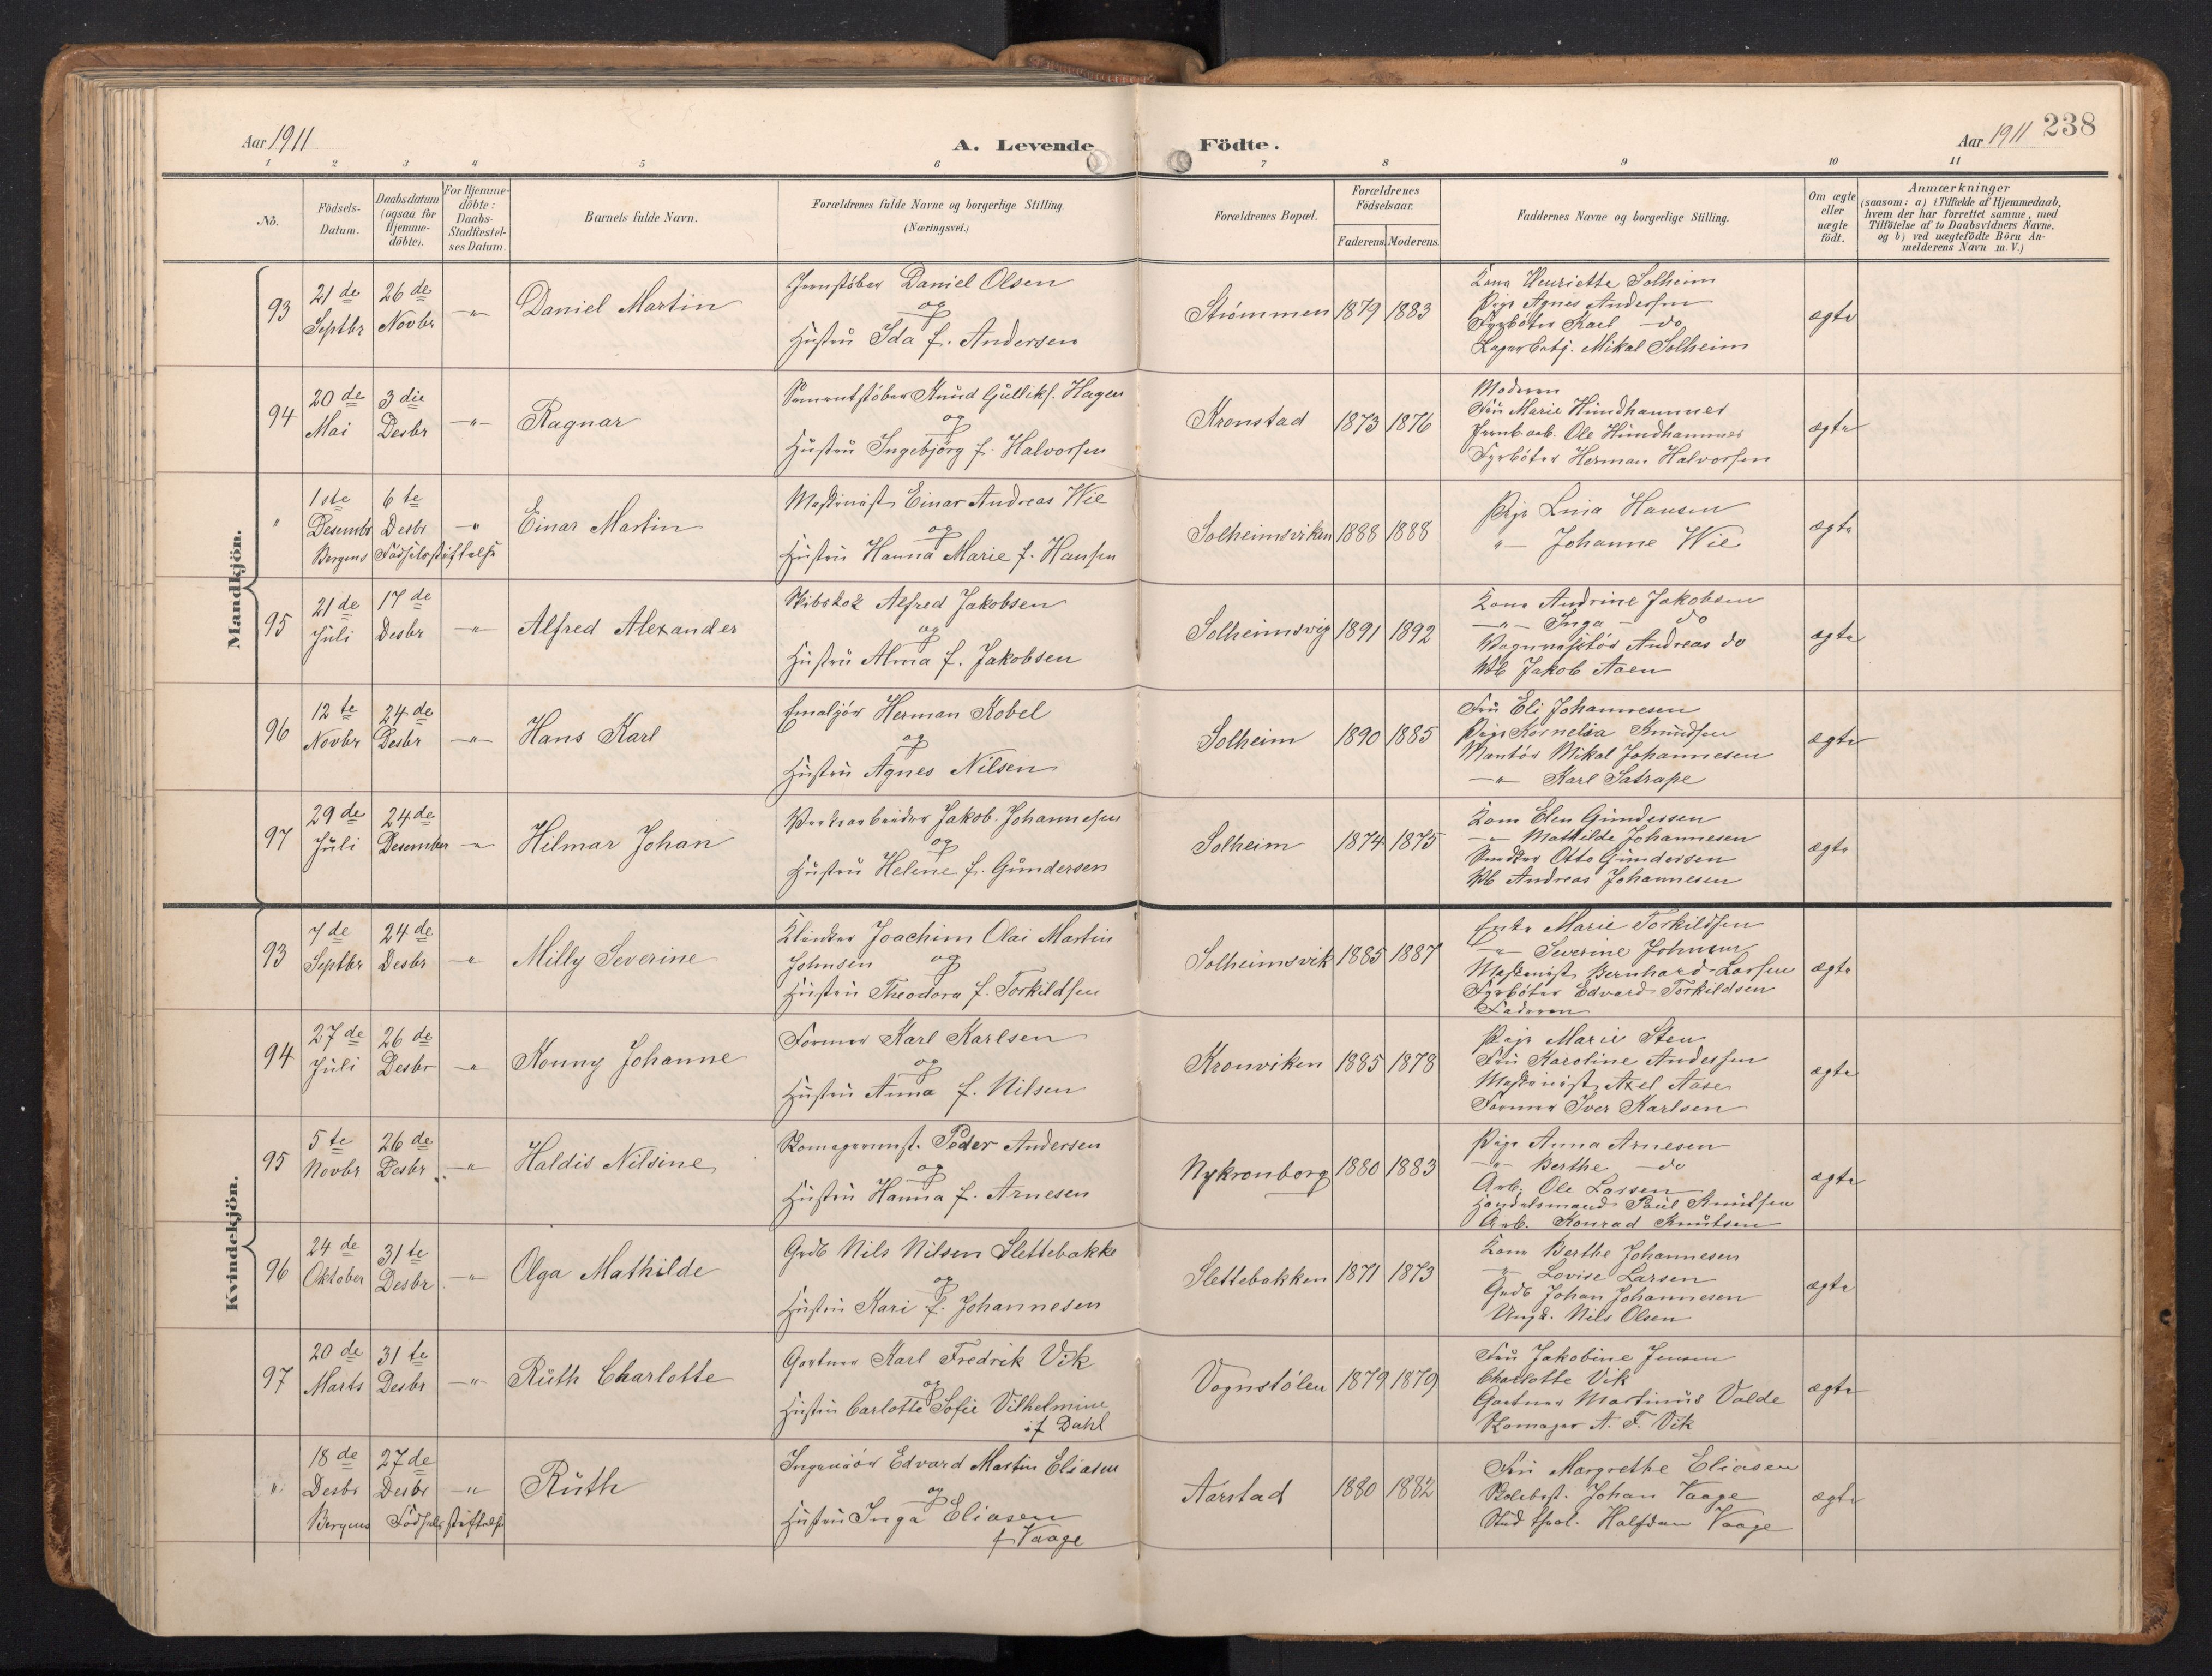 Aar 1911
A. Levende Födte.
Aar 1911
238
1 2 3 4 5 6 7 8 9 10 11
No.
Födsels-
Datum.
Daabsdatum
(ogsaa för
Hjemme-
döbte).
For Hjemme-
döbte:
Daabs-
Stadfæstel-
ses Datum.
Barnets fulde Navn.
Forældrenes fulde Navne og borgerlige Stilling.
(Næringsvei.)
Forældrenes Bopæl.
Forældrenes
Födselsaar.
Faderens. Moderens.
Faddernes Navne og borgerlige Stilling.
Om ægte
eller
uægte
födt.
Anmærkninger
(saasom: a) i Tilfælde af Hjemmedaab,
hvem der har forrettet samme, med
Tilföielse af to Daabsvidners Navne,
og b) ved uægtefödte Börn An-
melderens Navn m. V.)
Mandkjön.
93
21 de
Septbr
26 de
Novbr
-"-
Daniel Martin
Jernstöber Daniel Olsen
og
Hustru Ida f. Andersen
Strømmen
1879
1883
Kona Henriette Solheim
Pige Agnes Anderssen
Fyrböter Karl do
Lagerbetj. Mikal Solheim
ægte
94
20 de
Mai
3 die
Desbr
-"-
Ragnar
Sementstöber Knud Gulliks. Hagen
og
Hustru Ingebjørg f. Halvorssen
Kronstad
1873
1876
Moderen
Fru Marie Hundhammer
Jernb.arb. Ole Hundhammer
Fyrböter Herman Halvorssen
ægte
"
1ste
Desembr
6 te
Desbr
-"-
Bergens Födselsstiftelse
Einar Martin
Maskinist Einar Andreas Wie
og
Hustru Hanna Marie f. Hanssen
Solheimsviken
1888
1888
Pige Lina Hansen
"- Johanne Wie
ægte
95
21 de
Juli
17 de
Desbr
-"-
Alfred Alexander
Skibskok Alfred Jakobsen
og
Hustru Alma f. Jakobsen
Solheimsvig
1891
1892
Kona Andrine Jakobsen
-"- Inga - do
Andreas do
Jakob Aaen
ægte
96
12 te
Novbr
24 de
Desbr
-"-
Hans Karl
Emaljör Herman Kobel
og
Hustru Agnes Nilsen
Solheim
1890
1885
Fru Eli Johannesen
Pige Kornelia Knudsen
Montör Mikal Johannesen
-"- Karl Satrape
ægte
97
29 de
Juli
24 de
Desember
-"-
Hilmar Johan
Verksarbeider Jakob Johannesen
og
Hustru Helene f. Gundersen
Solheim
1874
1875
Kona Elen Gundersen
-"- Mathilde Johannesen
Snedker Otto Gundersen
Andreas Johannesen
ægte
Kvindekjön.
93
7 de
Septbr
24 de
Desbr
-"-
Milly Severine
Klinker Joachim Olai Martin
Johnsen og
Hustru Theodora f. Torkildsen
Solheimsvik
1885
1887
Enke Marie Torkildsen
-"- Severine Johnsen
Maskinist Bernhard Larsen
Fyrböter Edvard Torkildsen
Faderen
ægte
94
27 de
Juli
26 de
Desbr
-"-
Konny Johanne
Former Karl Karlsen
og
Hustru Anna f. Nilsen
Kronviken
1885
1878
Pige Marie Sten
Fru Karoline Anderssen
Maskinist Axel Aase
Former Iver Karlsen
ægte
95
5 te
Novbr
26 de
Desbr
-"-
Haldis Nilsine
Skomagermst. Peder Andersen
og
Hustru Hanna f. Arnesen
Nykronborg
1880
1883
Pige Anna Arnesen
-"- Berthe - do
Arb. Ole Larsen
Handelsmand Paul Knudsen
Arb. Konrad Knutsen
ægte
96
24 de
Oktober
31 te
Desbr
-"-
Olga Mathilde
Grdb Nils Nilsen Slettebakke
og
Hustru Kari f. Johannesen
Slettebakken
1871
1873
Kona Berthe Johannesen
-"- Lovise Larsen
Grdb Johan Johannesen
Ungk. Nils Olsen
ægte
97
20 de
Marts
31 te
Desbr
-"-
Ruth Charlotte
Gartner Karl Fredrik Vik
og
Hustru Carlotte Sofie Vilhelmine
f Dahl
Vognstølen
1879
1879
Fru Jakobine Jensen
Charlotte Vik
Gartner Martinus Valde
Skomager A. F. Vik
ægte
"
18 de
Desbr
27 de
Desbr
-"-
Bergens Födselsstiftelse
Ruth
Ingeniör Edvard Martin Eliasen
og
Hustru Inga Eliasen
f Vaage
Aarstad
1880
1882
Fru Margrethe Eliasen
Skolebest. Johan Vaage
Stud theol. Halfdan Vaage
ægte